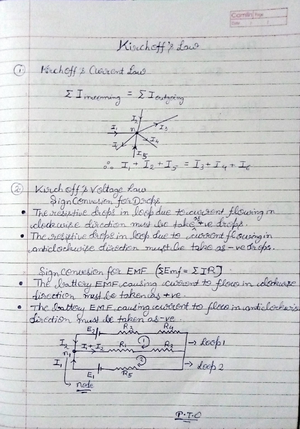 Kirchoff's Law
① Kirchoff's Current Law
Σ I incomming = Σ I outgoing
I₂
I₁ n I₃
I₄
I₅
∴ I₁ + I₂ + I₅ = I₃ + I₄ + I₆
② Kirchoff's Voltage Law
Sign Convension for Drops
• The resistive drops in loop due to current flowing in
clockwise direction must be take +ve drops.
• The resistive drops in loop due to current flowing in
anticlockwise direction must be take as -ve drops.
Sign Convension for EMF [ΣEmf = ΣIR]
• The battery EMF causing current to flow in clockwise
direction must be taken as +ve.
• The battery EMF causing current to flow in anticlockwise
direction must be taken as -ve
E₂ R₃ R₄
I₂ ① → Loop 1
n₁ I₁+I₂ R₁ R₂
I₁ ② → Loop 2
E₁ R₅
node
P.T.O